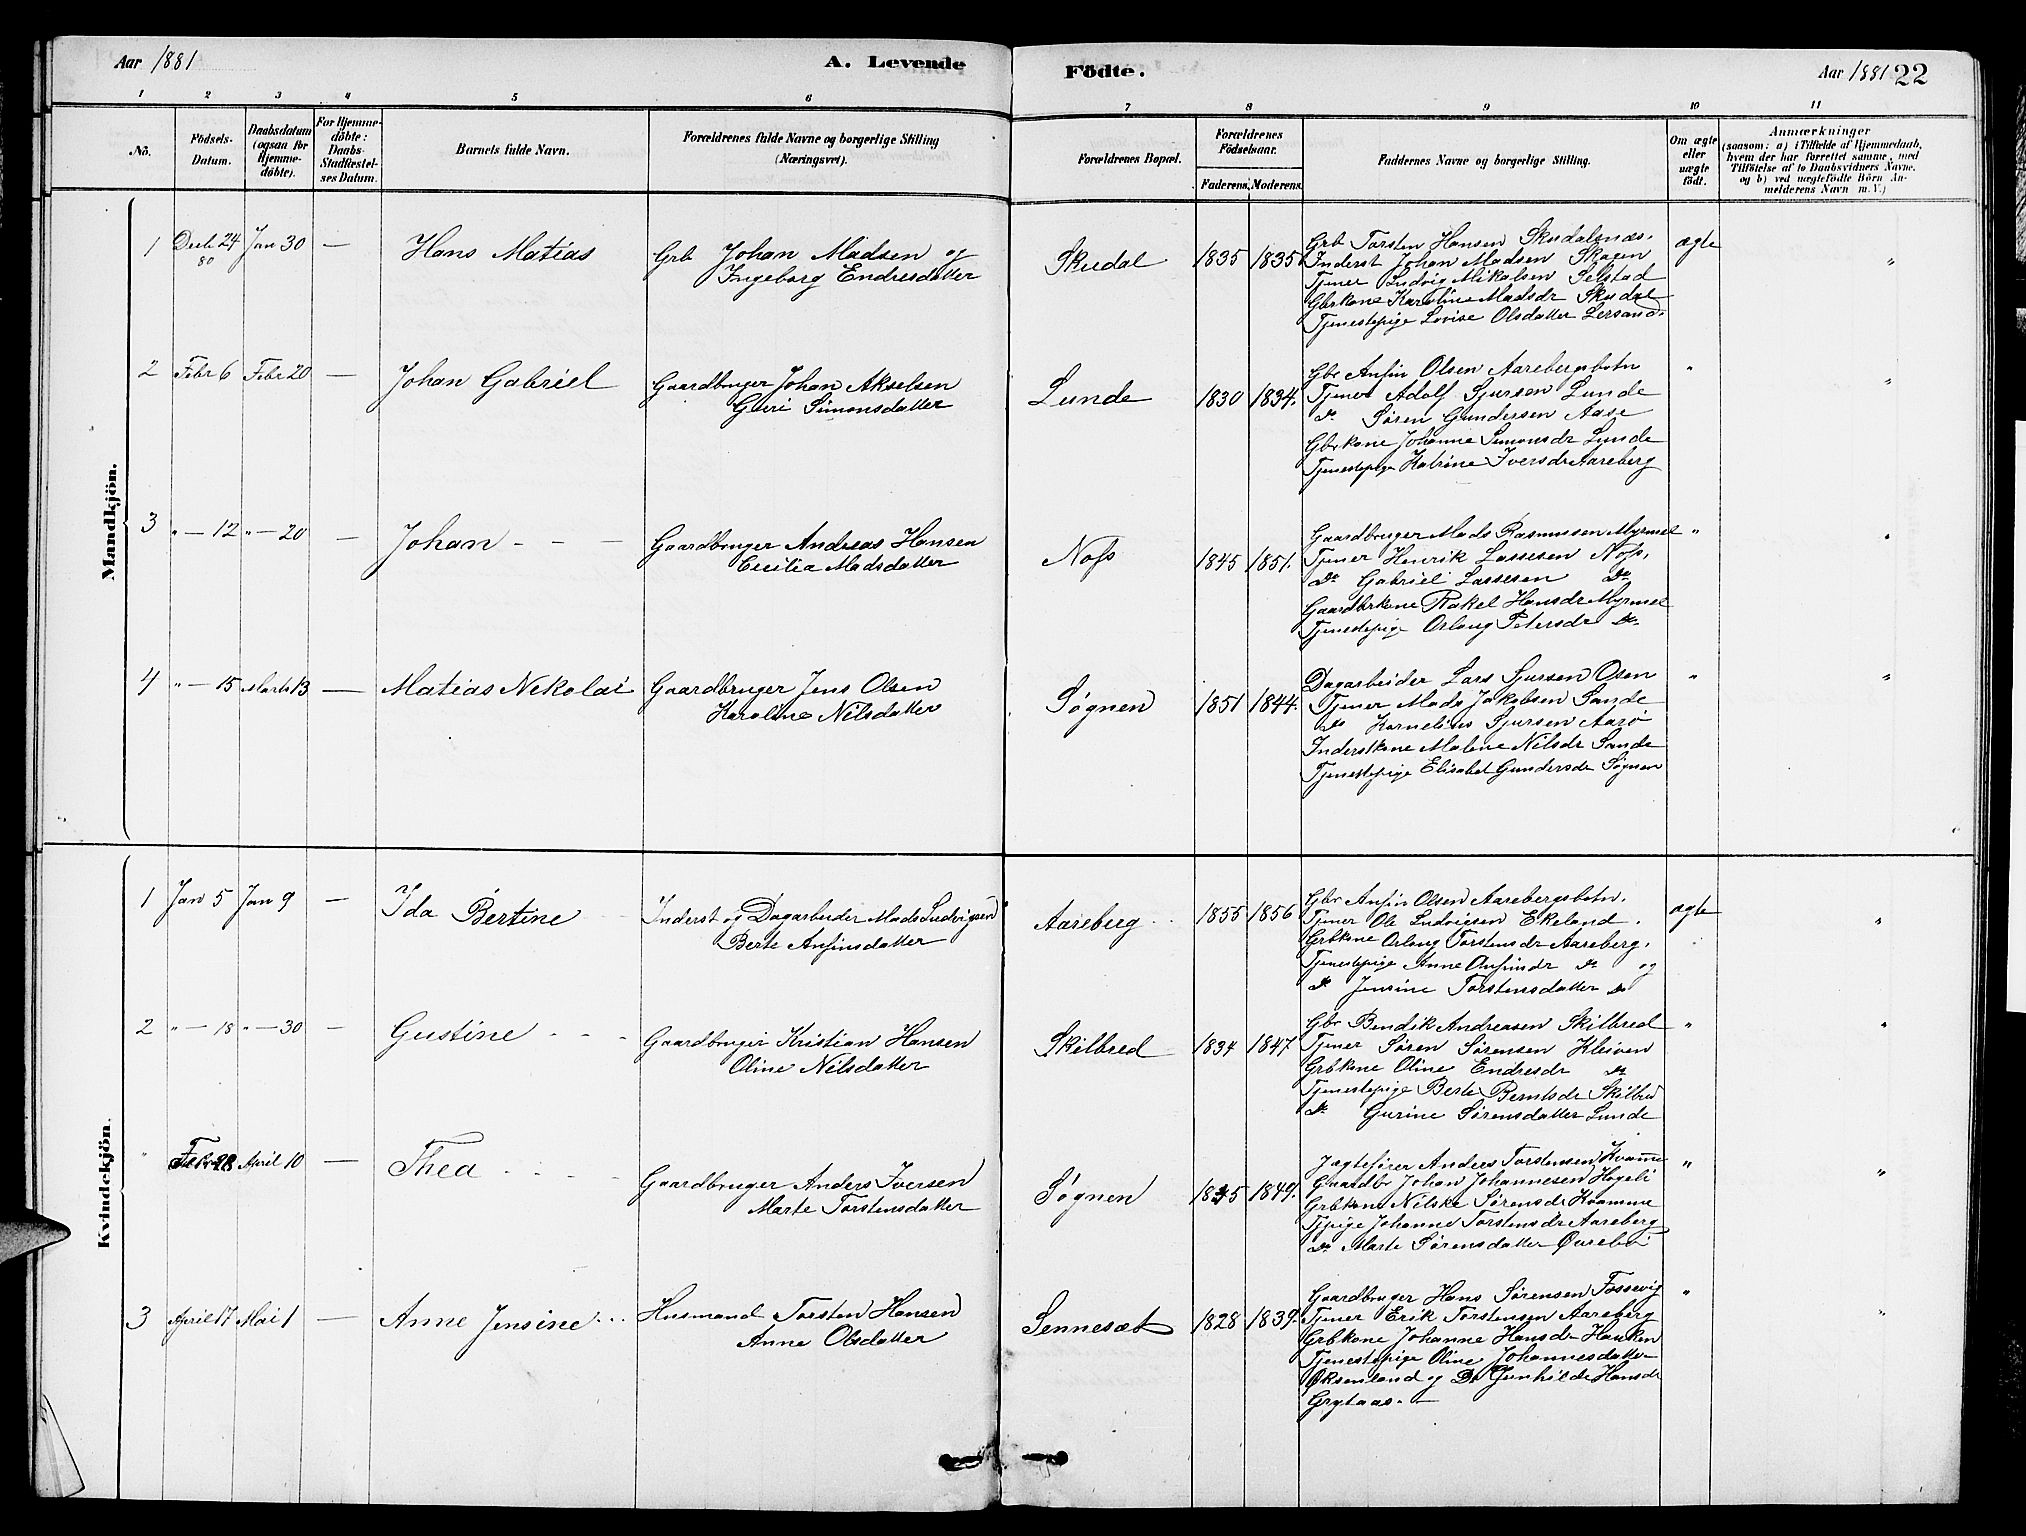 Aar 1881
A. Levende
Födte.
Aar 1881
22
1 2 3 4 5 6 7 8 9 10 11
No.
Födsels-
Datum.
Daabsdatum
(ogsaa for
Hjemme-
döbte).
For Hjemme-
döbte:
Daabs-
Stadfæstel-
ses Datum.
Barnets fulde Navn.
Forældrenes fulde Navne og borgerlige Stilling
(Næringsvei).
Forældrenes Bopæl.
Forældrenes
Födselsaar.
Faderens. Moderens.
Faddernes Navne og borgerlige Stilling.
Om ægte
eller
uægte
födt.
Anmærkninger
(saasom: a) i Tilfælde af Hjemmedaab,
hvem der har forrettet samme, med
Tilföielse af to Daabsvidners Navne,
og b) ved uægtefödte Börn An-
melderens Navn m. V.)
Mandkjön.
1 Decb 24 80 Jan 30 — Hans Matias
Grb Johan Madsen og
Ingeborg Endresdatter
Skudal 1835 1835
Grb Torsten Hansen Skudalsnæs.
Inderst Johan Madsen Skagen
Tjener Ludvig Mikalsen Selstad
Gbrkone Karoline Madsdr Skudal
Tjenestepige Lovise Olsdatter Lersand.
ægte "
2 Febr 6 Febr 20 — Johan Gabriel
Gaardbruger Johan Akselsen
Guri Simonsdatter
Lunde 1830 1834.
Gbr Anfin Olsen Aarebergsbotn
Tjener Adolf Sjursen Lunde
do Søren Gundersen Aase
Gbrkone Johanne Simonsdr Lunde
Tjenestepige Katrine Iversdr Aareberg
" "
3 " — 12 " — 20 — Johan - - -
Gaardbruger Andreas Hansen
Cecilia Madsdatter
Nofs 1845 1851.
Gaardbruger Mads Rasmussen Myrmel
Tjener Henrik Lassesen Nofs.
do Gabriel Lassesen do
Gaardbrkone Rakel Hansdr Myrmel
Tjenestepige Orlaug Petersdr do.
" "
4 " — 15 Marts 13 — Matias Nikolai
Gaardbruger Jens Olsen
Karoline Nilsdatter
Søgnen 1851 1844.
Dagarbeider Lars Sjursen Osen
Tjener Mads Jakobsen Sande
do Kornelius Sjursen Aarø
Inderstkone Malene Nilsdr Sande
Tjenestepige Elisabet Gundersdr Søgnen
" "
Kvindekjön.
1 Jan 5 Jan 9 — Ida Bertine
Inderst og Dagarbeider Mads Ludvigsen
Berte Anfinsdatter
Aareberg 1855 1856
Gbr Anfin Olsen Aarebergsbotn.
Tjener Ole Ludvigsen Ekeland.
Grbkone Orlaug Torstensdr Aareberg.
Tjenestepige Anne Anfinsdr do og
do Jensine Torstensdatter do
ægte "
2 " — 18 " — 30 — Gustine - - -
Gaardbruger Kristian Hansen
Oline Nilsdatter
Skilbred 1834 1847
Gbr Bendik Andreasen Skilbred
Tjener Søren Sørensen Kleiven
Grbkone Oline Endresdr do
Tjenestepige Berte Berntsdr Skilbred
do Gurine Sørensdatter Lunde
" "
" Febr 28 April 10 — Thea - - -
Gaardbruger Anders Iversen
Marte Torstensdatter
Søgnen 1845 1849.
Jagtefører Anders Torstensen Kvamme
Gaardbr Johan Johannesen Høgeli
Grbkone Nilske Sørensdr Kvamme
Tjpige Johanne Torstensdr Aareberg
do Marte Sørensdatter Øurebø
" "
3 April 17 Mai 1 — Anne Jensine - - -
Husmand Torsten Hansen
Anne Olsdatter
Sennesæt 1828 1839.
Gaardbruger Hans Sørensen Fossevig
Tjener Erik Torstensen Aareberg
Grbkone Johanne Hansdr Hauken
Tjenestepige Oline Johannesdatter
Øksenland og Do Gunhilde Hansdr
Grytaas. —
" "